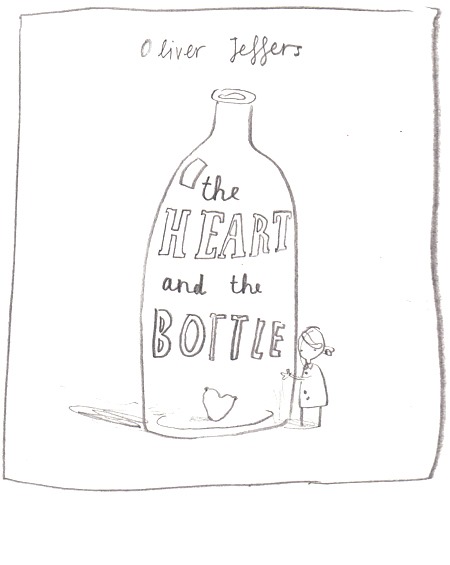 Oliver Jeffers
the
HEART
and the
BOTTLE